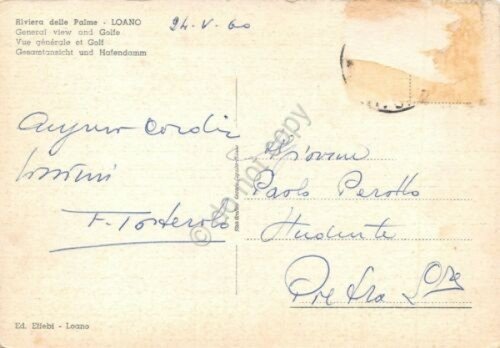 Riviera delle Palme - LOANO
General view and Golfe
Vue générale et Golf
Gesamtansicht und Hafendamm
24-V-60
Auguro cordia
lissimi
Al Giovane
Paolo Perotto
Studente
Pietra L
Ed. Elfebi - Loano
© do not copy